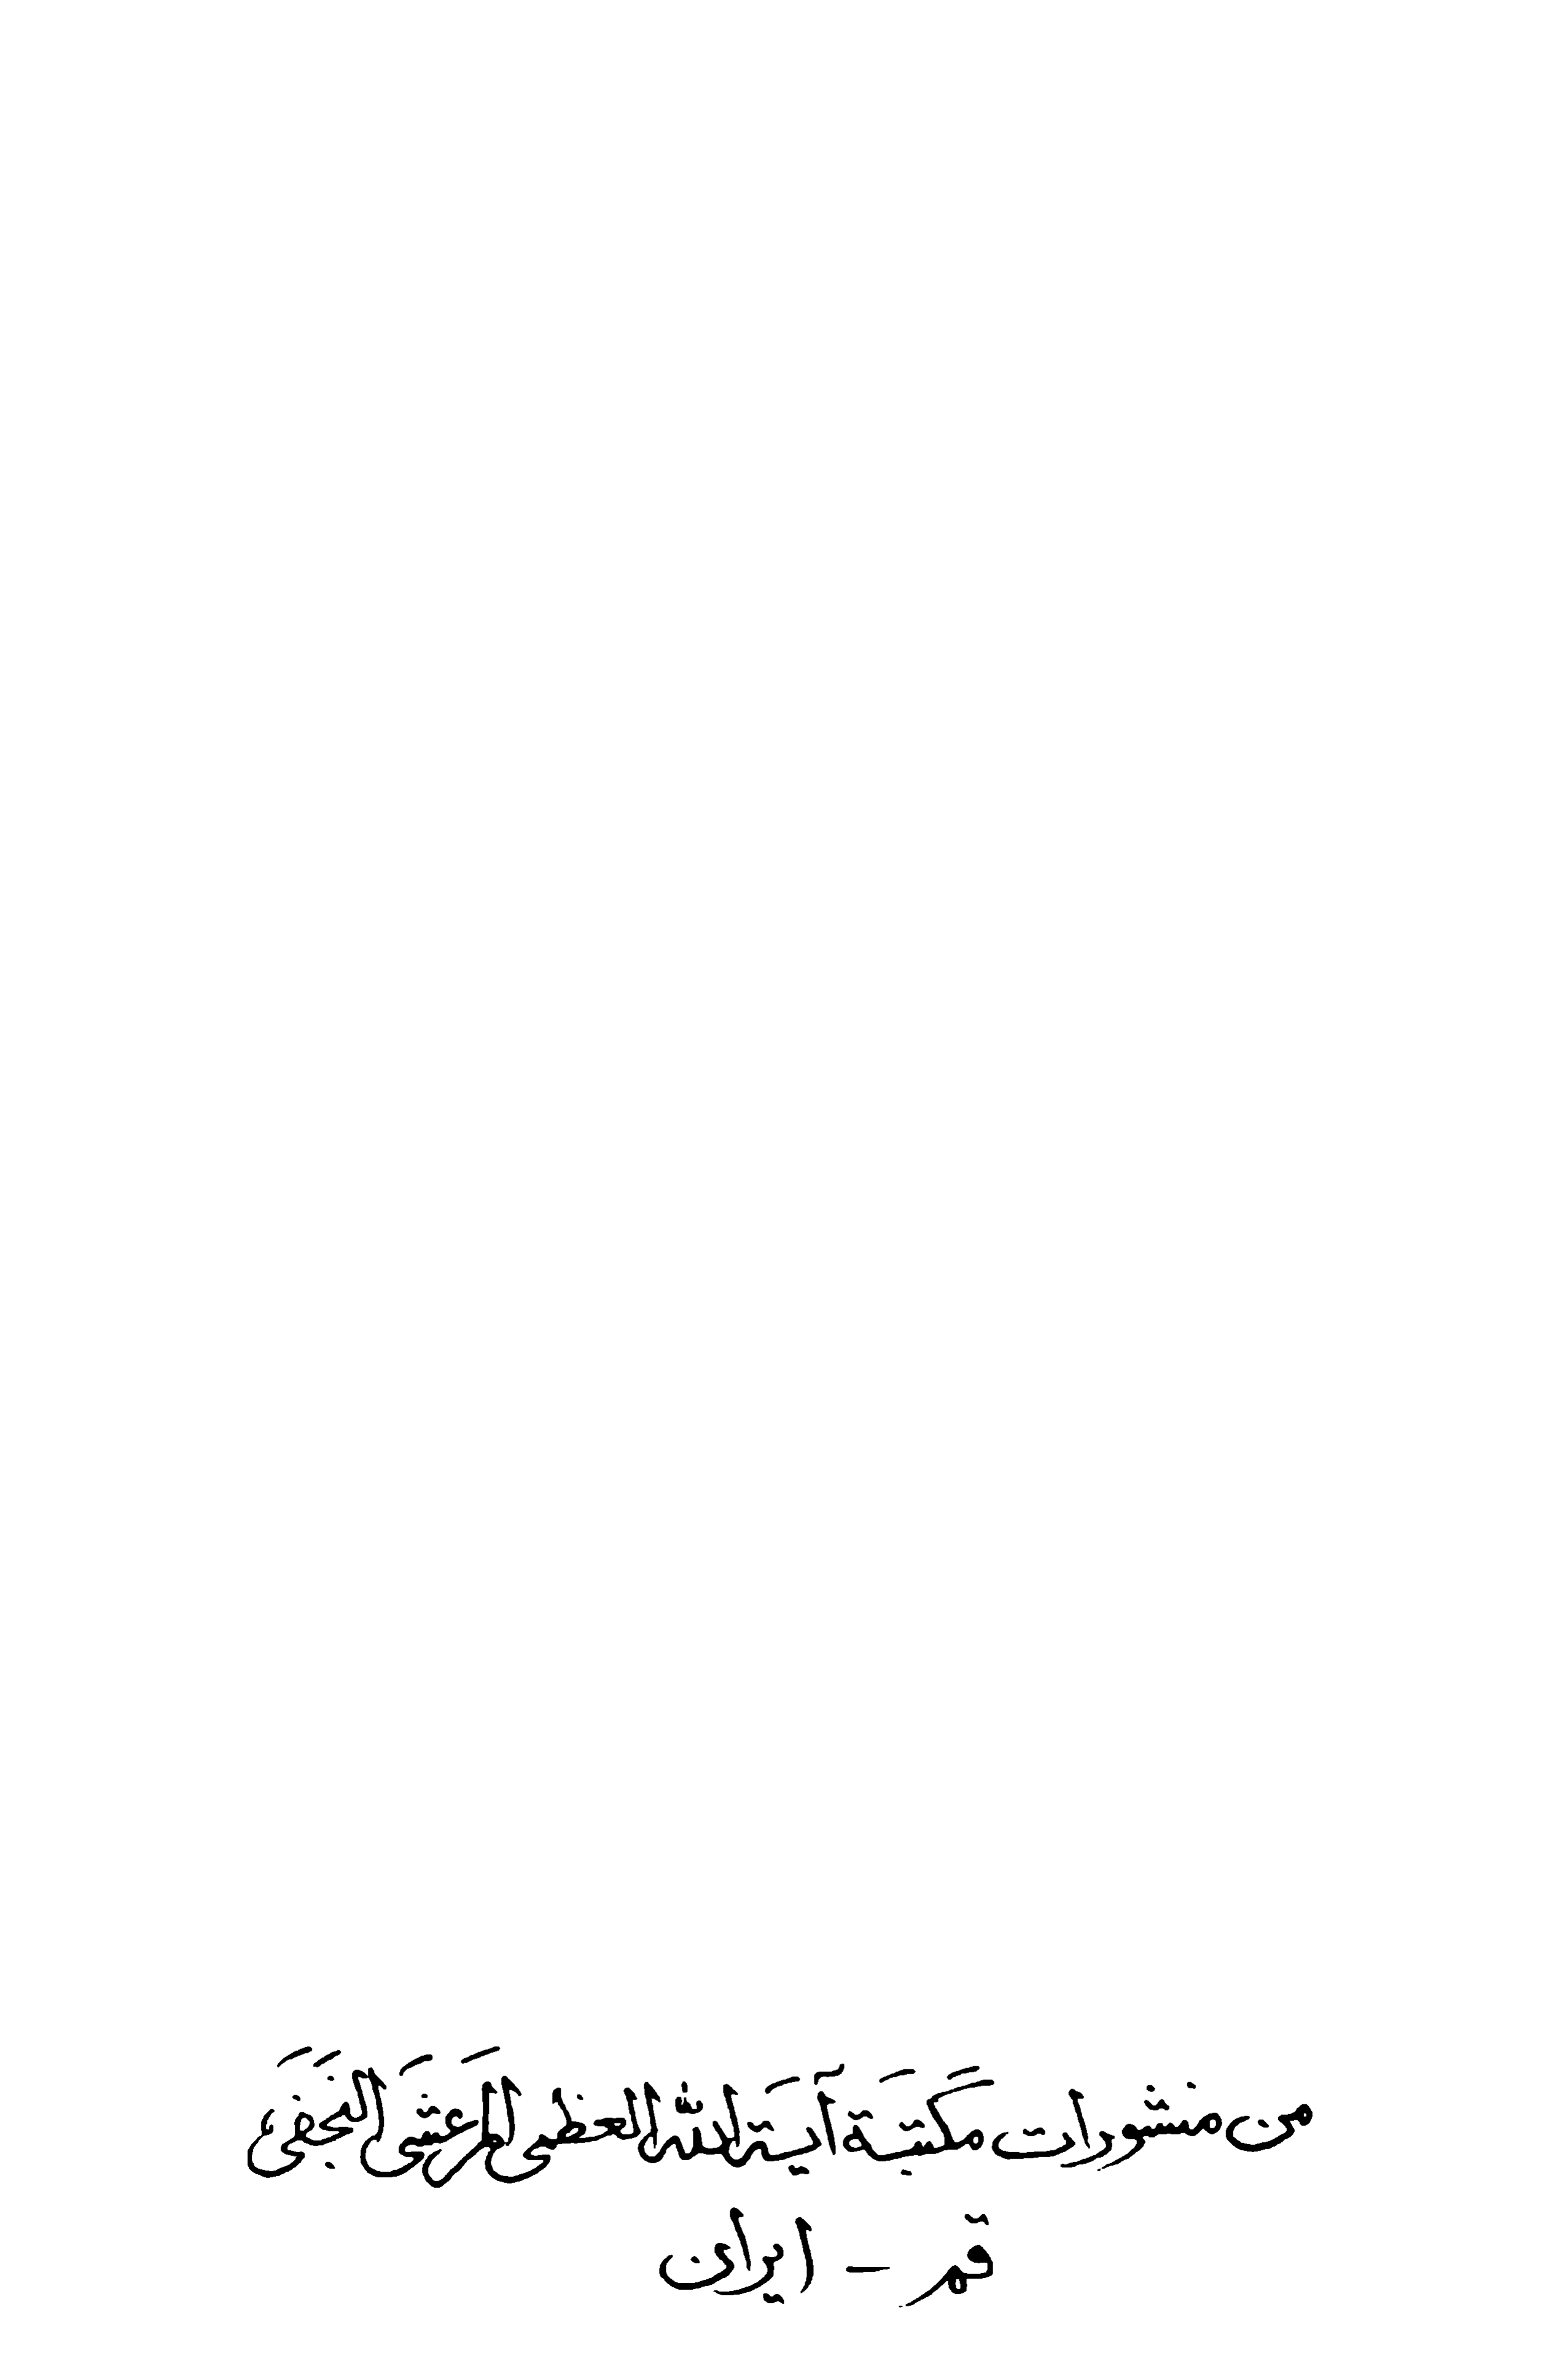 من منشورات مكتبة آية الله العظمى المرعشي النجفي
قم - ايران